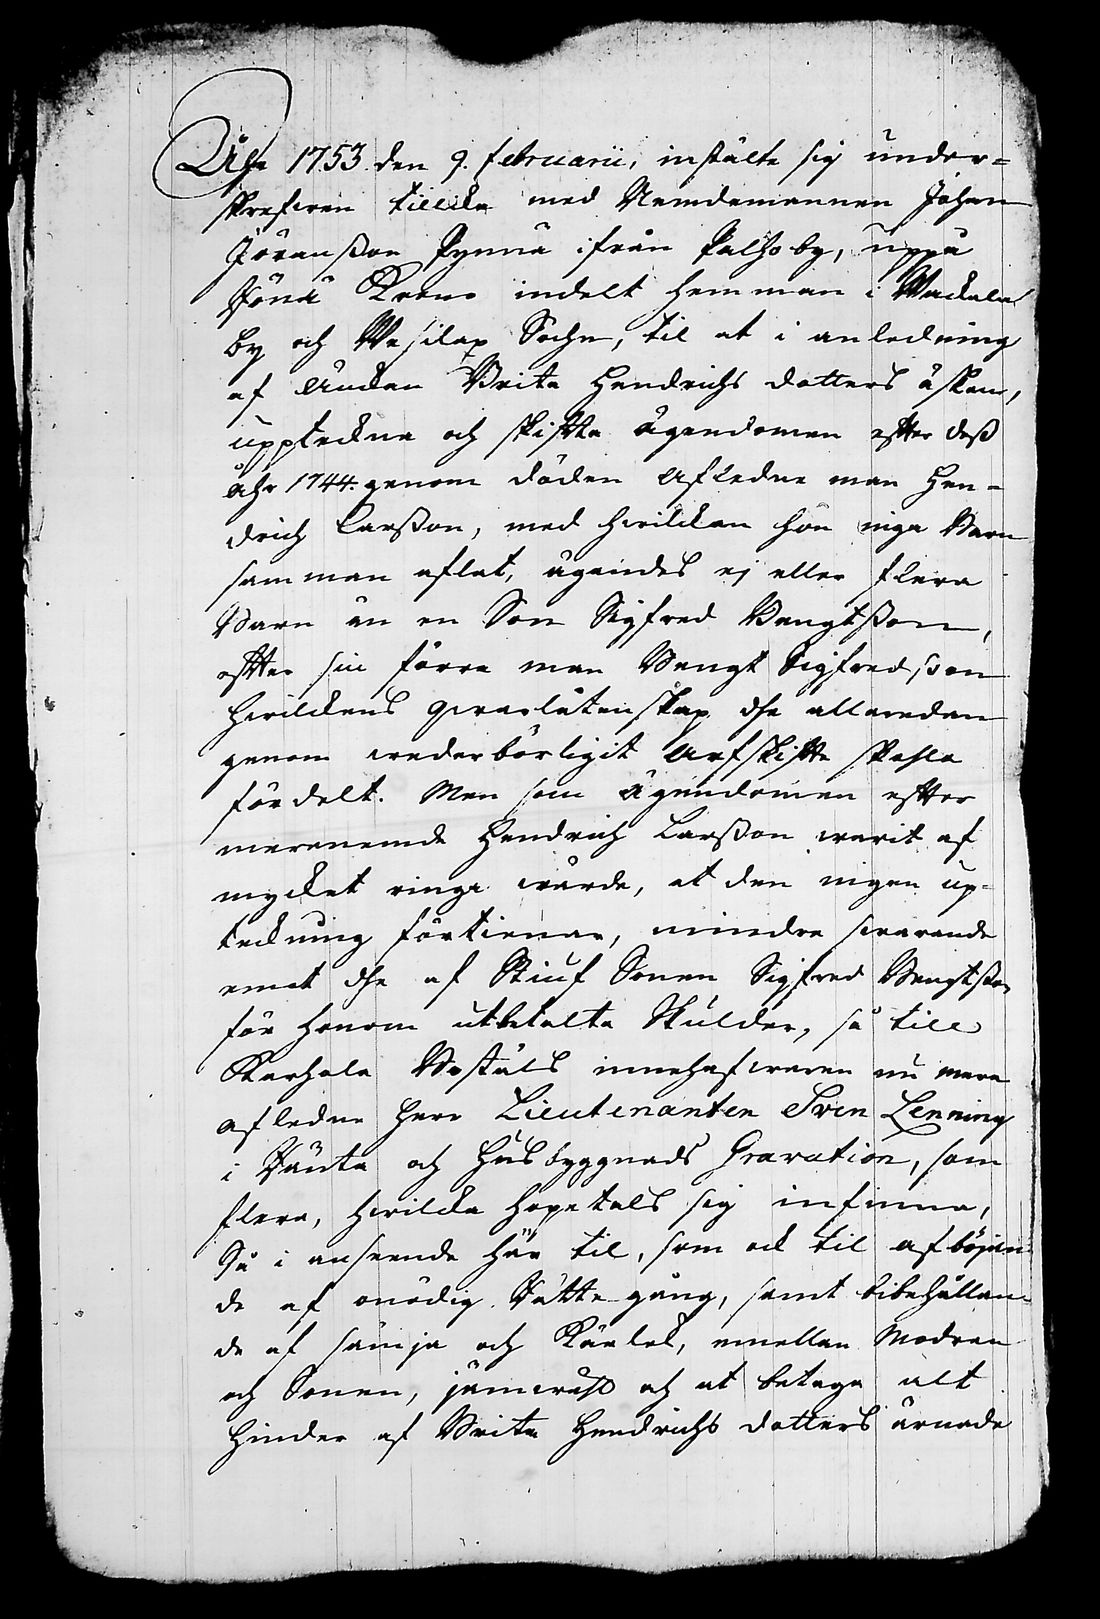 Åhr 1753 den 9. februarii, instälte sig under=
skrefwen tillika med Nemdemannen Johan
Jöransßon Pynnä ifrån Palho by, uppå
Pynä Krono indelt hemman i Wackala
by och Wesilax Sochn, til at i anledning
af Änckan Brita Hendrichs dotters äskan,
upptekna och skifta ägendomen efter deß
åhr 1744. genom döden afledne man Hen=
drich Larßon, med hwilcken hon inga Barn
samman aflat, ägandes ej eller flera
Barn än en Son Sigfred Bengtßon,
efter sin förra man Bengt Sigfredsson
hwilckens qwarlåtenskap dhe allaredan
genom wederbörligit Arfskifte skohla
fördelt. Men som ägendomen efter
merenemde Hendrich Larßon warit af
mycket ringa wärde, at den ingen up=
teckning förtienar, mindre swarande
emot dhe af Stiuf Sonen Sigfred Bengtßon
för honom utbetalte Skulder, så till
Karhola Boställs innehafwaren nu mera
afledne Herr Lieutenanten Sven Lenning
i Ränta och Husbyggnads Gravation, som
flera, hwilcka hopetals sig infinna,
Så i anseende här til, som ock til afböjan=
de af onödig Rättegång, samt bibehållan=
de af sämja och Kärlek, emellan Modren
och Sonen, jämwähl och at betaga alt
hinder af Brita Hendrichs dotters ärnade